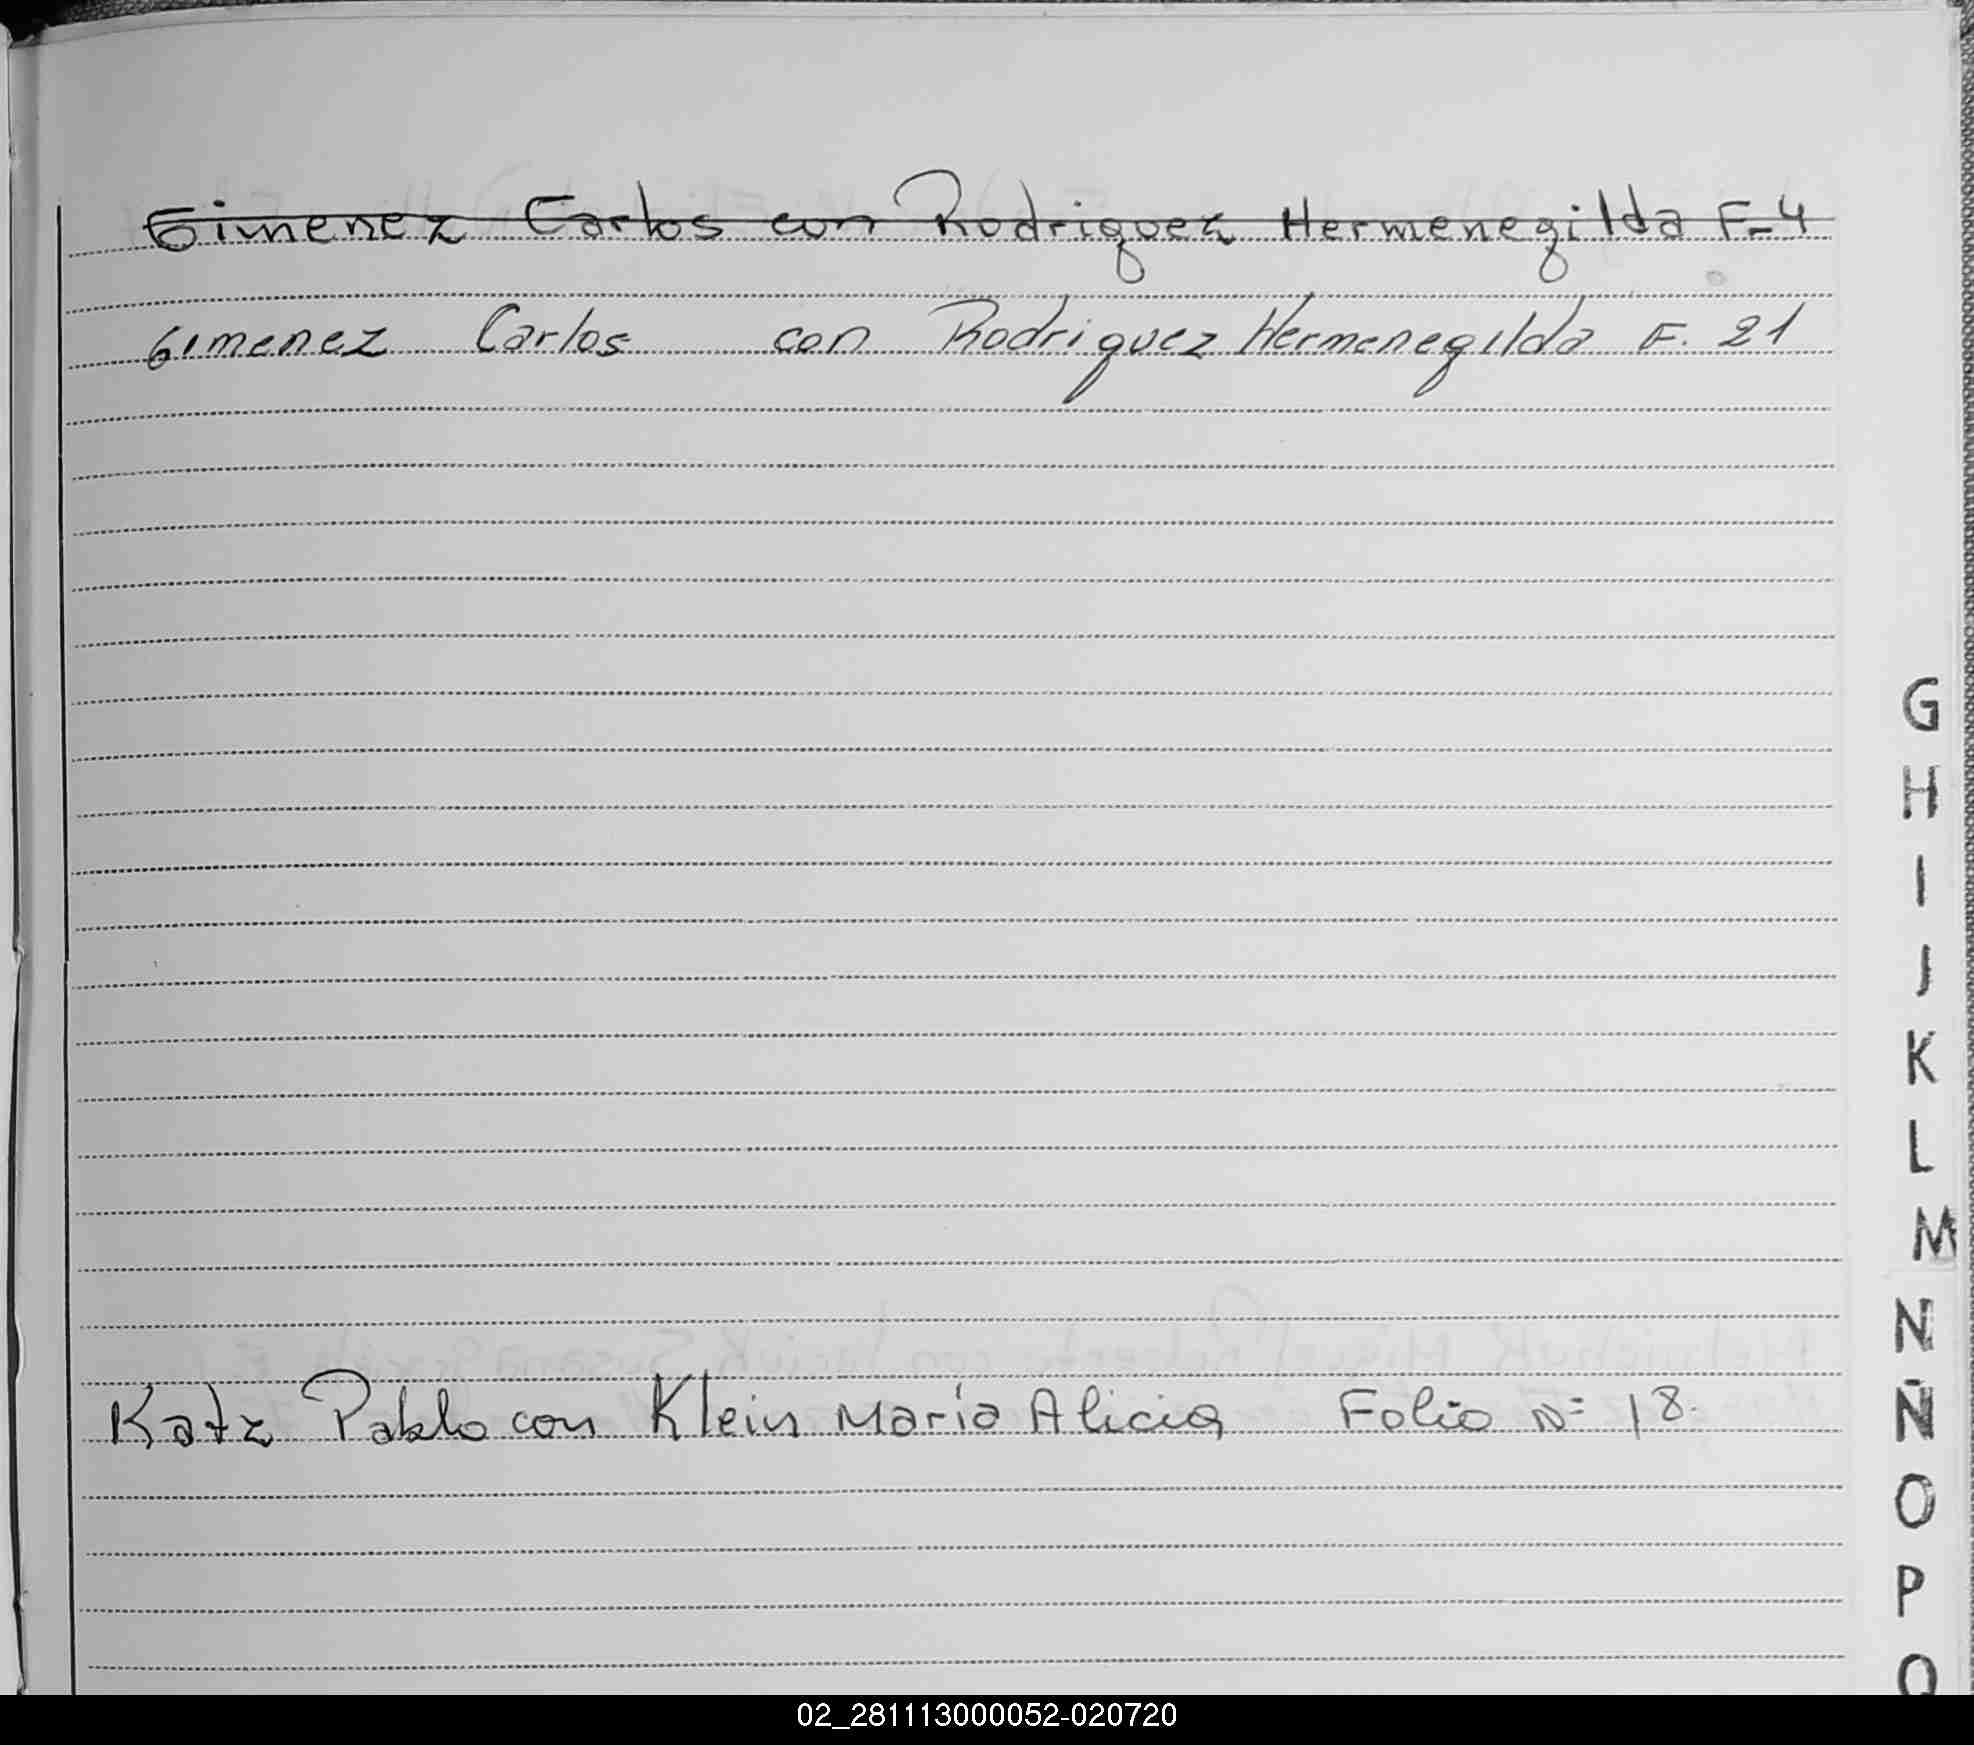 Gimenez Carlos con Rodriguez Hermenegilda F-4
Gimenez Carlos con Rodriguez Hermenegilda F. 21
G
H
I
J
K
L
M
N
Ñ
O
P
Q
Katz Pablo con Klein María Alicia Folio Nº 18.
02_281113000052-020720